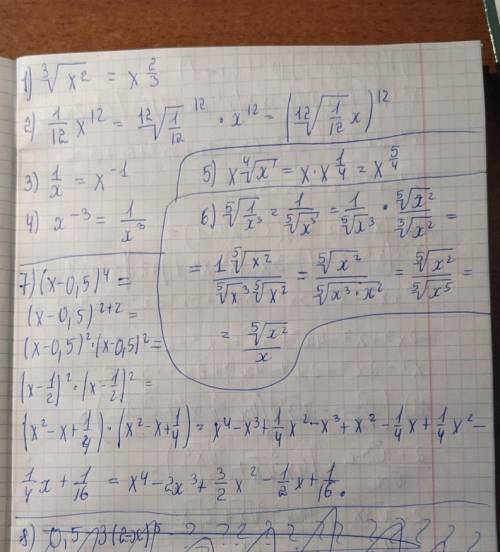 1) ∛x² = x^(2/3)
2) 1/12 x¹² = ¹²√(1/12)¹² · x¹² = (¹²√(1/12) x)¹²
3) 1/x = x⁻¹
4) x⁻³ = 1/x³
5) x ⁴√x = x · x^(1/4) = x^(5/4)
6) ⁵√(1/x³) = 1/⁵√x³ = 1/⁵√x³ · ⁵√x²/⁵√x² =
= 1 ⁵√x² / (⁵√x³ ⁵√x²) = ⁵√x² / ⁵√(x³ · x²) = ⁵√x² / ⁵√x⁵ =
= ⁵√x² / x
7) (x-0,5)⁴ =
(x-0,5)²⁺² =
(x-0,5)² · (x-0,5)² =
(x - 1/2)² · (x - 1/2)² =
(x² - x + 1/4) · (x² - x + 1/4) = x⁴ - x³ + 1/4 x² - x³ + x² - 1/4 x + 1/4 x² -
1/4 x + 1/16 = x⁴ - 2x³ + 3/2 x² - 1/2 x + 1/16.
8) 0,5